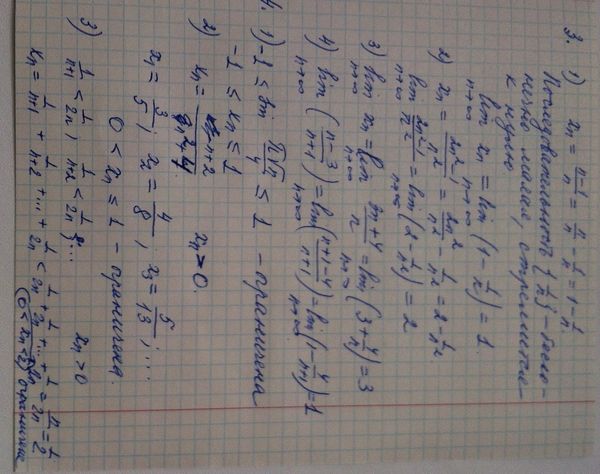 3. 1) xₙ = (n-1)/n = n/n - 1/n = 1 - 1/n.
Последовательность {1/n} - беско-
нечно малая, стремитсля-
к нулю
lim n→∞ xₙ = lim n→∞ (1 - 1/n) = 1.
2) xₙ = (2n²-1)/n² = 2n²/n² - 1/n² = 2 - 1/n²
lim n→∞ (2n²-1)/n² = lim n→∞ (2 - 1/n²) = 2
3) lim n→∞ xₙ = lim n→∞ (3n+4)/n = lim n→∞ (3 + 4/n) = 3
4) lim n→∞ ((n-3)/(n+1)) = lim n→∞ ((n+1-4)/(n+1)) = lim n→∞ (1 - 4/(n+1)) = 1
4. 1) -1 ≤ sin π√n/4 ≤ 1 - ограничена
-1 ≤ xₙ ≤ 1
2) xₙ = n+2 xₙ > 0.
x₁ = 3/5; x₂ = 4/8; x₃ = 5/13; ...
0 < xₙ ≤ 1 - ограничена.
3) 1/(n+1) < 1/2n; 1/(n+2) < 1/2n; ... xₙ > 0
xₙ = 1/(n+1) + 1/(n+2) + ... + 1/2n < 1/2n + 1/2n + ... + 1/2n = n/2n = 1/2
(0 < xₙ < 1/2) ограничена